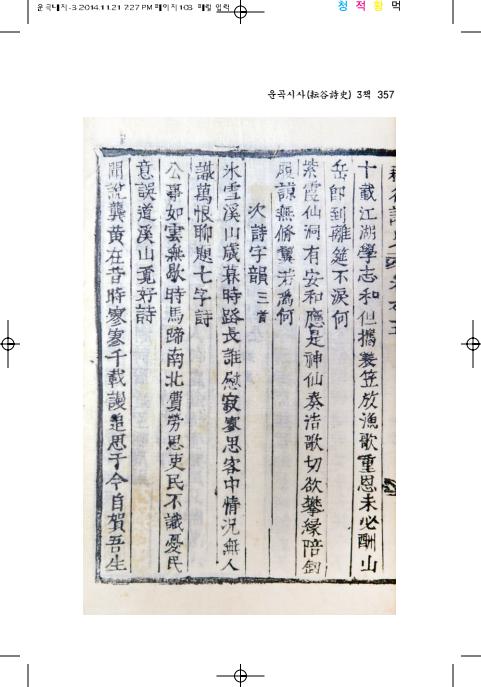 운곡내지-3 2014.11.21 7:27 PM 페이지103 매킬 입력
청 적 황 먹
운곡시사(耘谷詩史) 3책 357
十載江湖學志和但携蓑笠放漁歌重恩未必酬山
岳卽到離筵不淚何
紫霞仙洞有安和應是神仙奏浩歌切欲攀緣陪劒
履諒無脩翼若爲何
次詩字韻 三首
氷雪溪山歲暮時路長誰慰寂寥思客中情況無人
識萬恨聊題七字詩
公事如雲無歇時馬蹄南北費勞思吏民不識憂民
意誤道溪山覓好詩
聞說龔黃在昔時寥寥千載謾追思于今自賀吾生